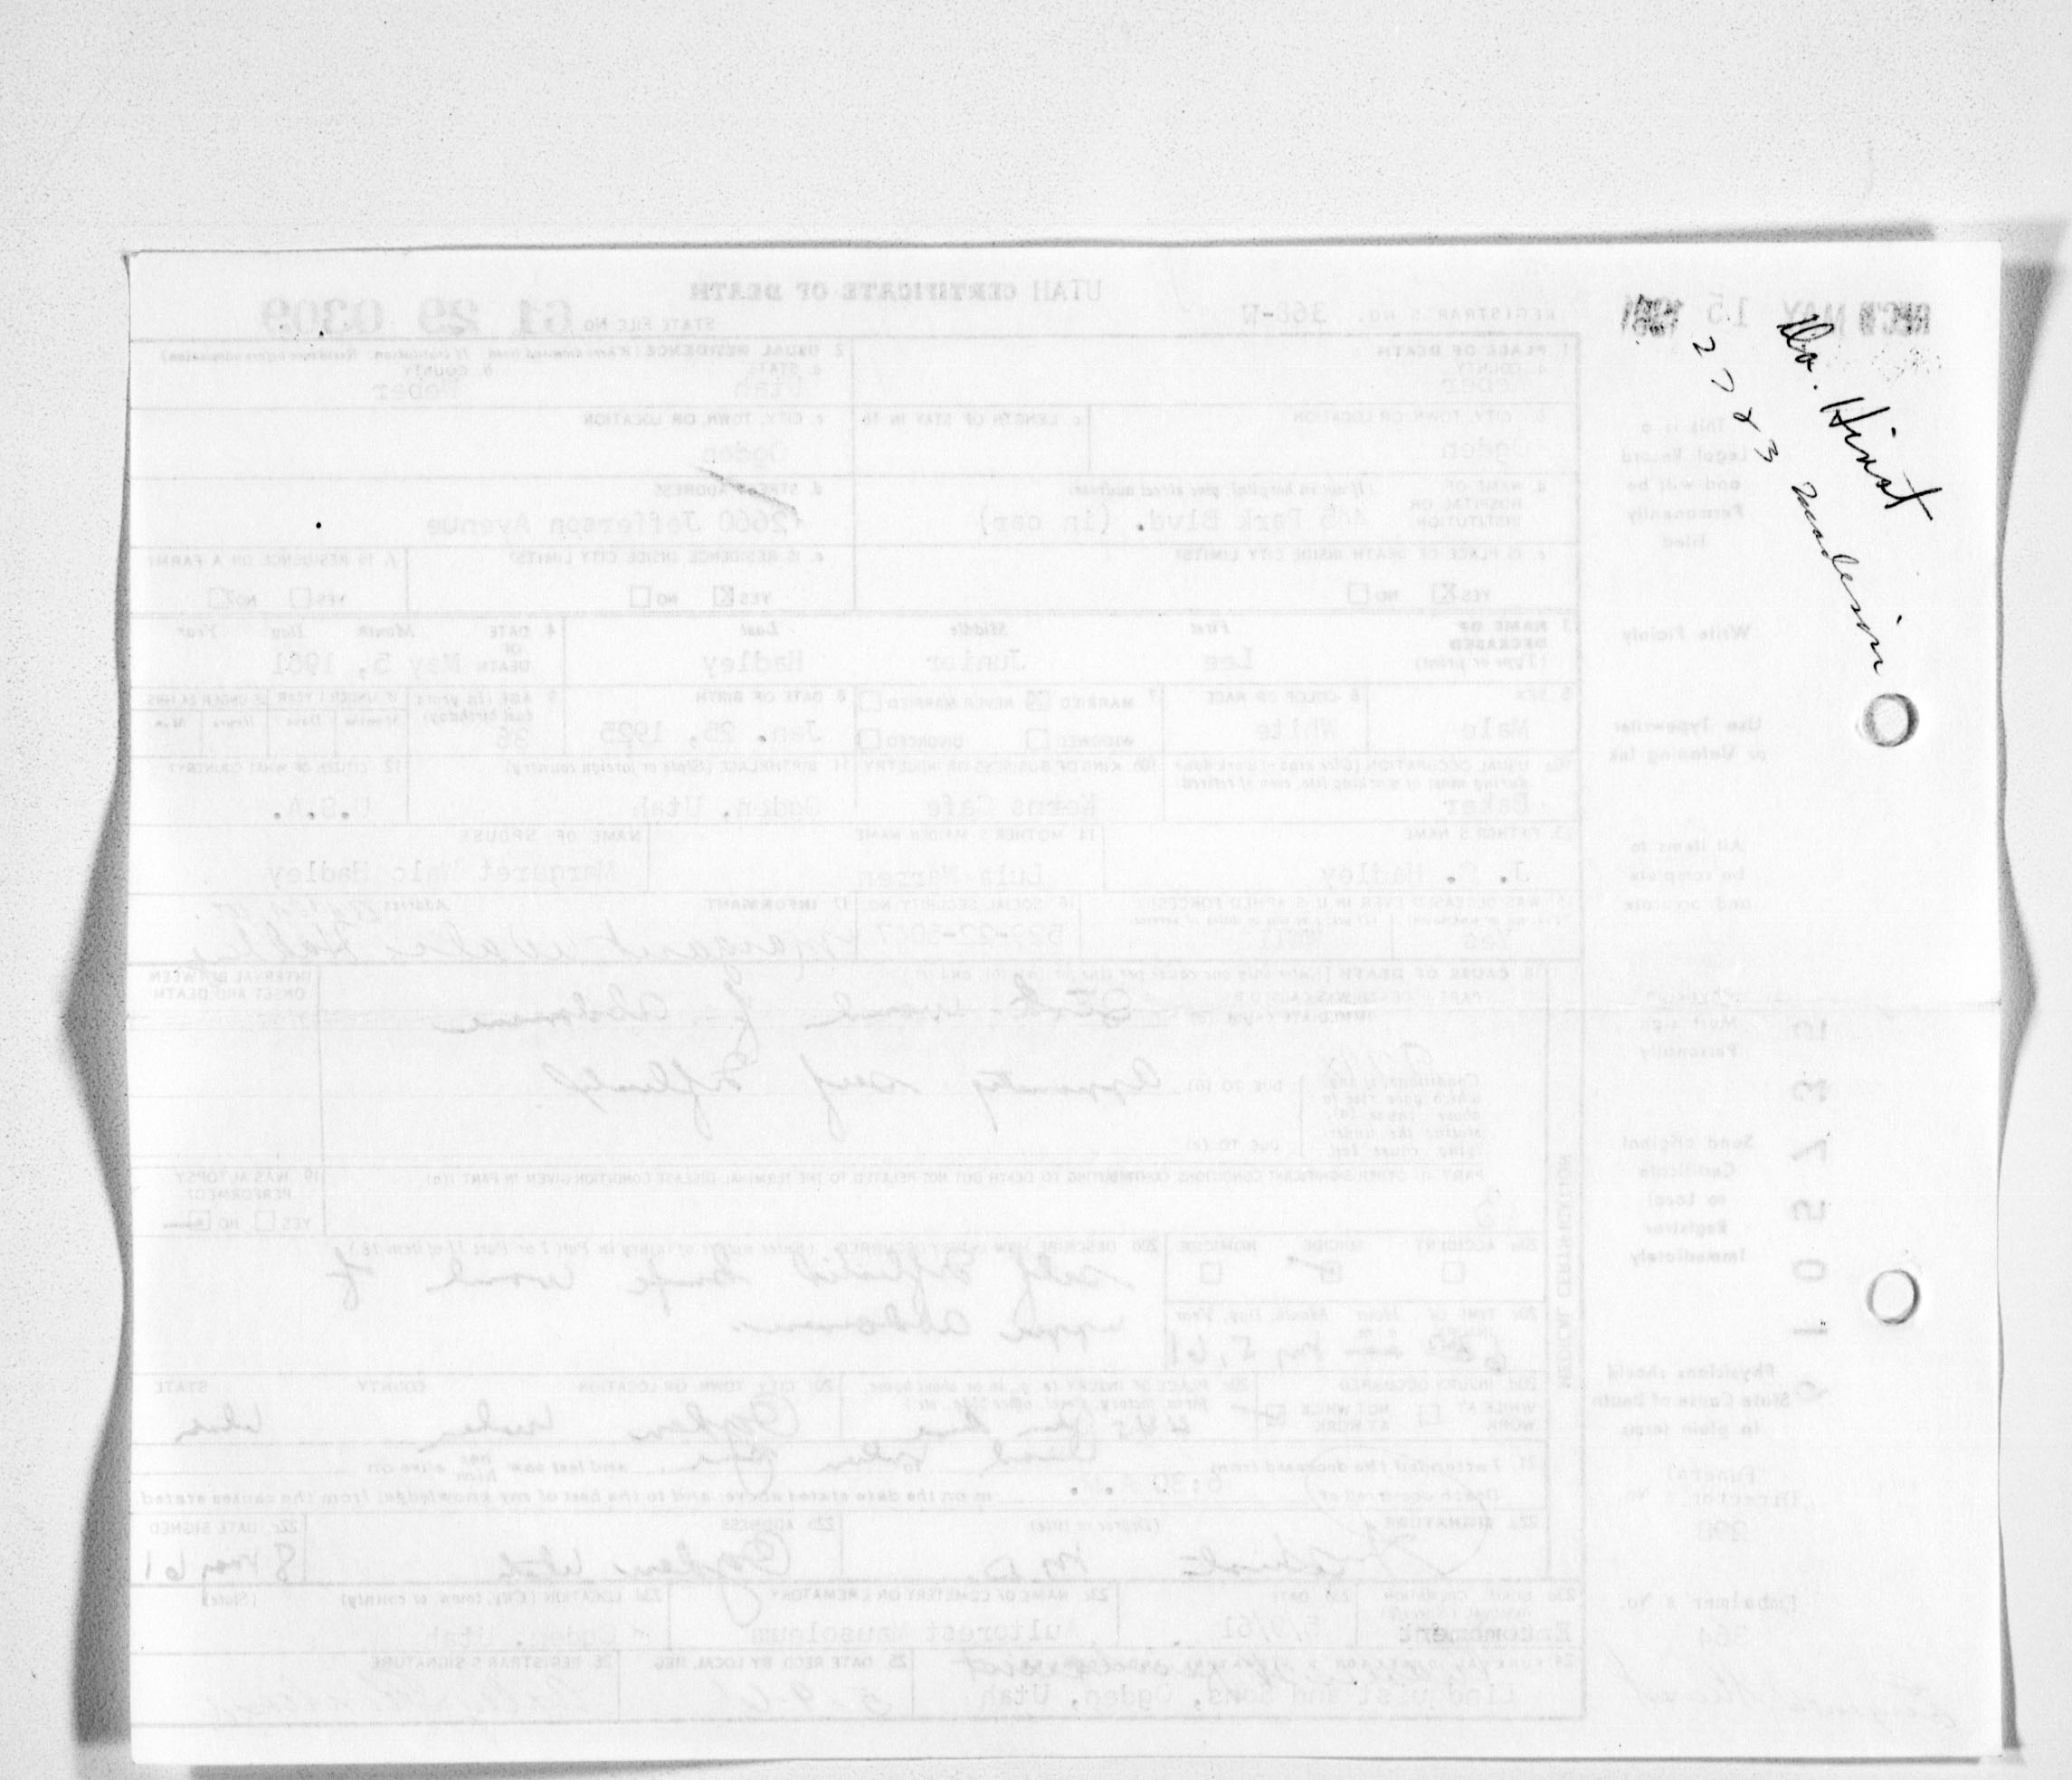 Dr. Hirst
2783 Madison
UTAH CERTIFICATE OF DEATH
REC'D MAY 15 1961
REGISTRAR'S NO. 368-N
STATE FILE NO. 61 29 0309
1. PLACE OF DEATH
a. COUNTY
Weber
2. USUAL RESIDENCE (Where deceased lived. If institution: Residence before admission)
a. STATE
Utah
b. COUNTY
Weber
b. CITY, TOWN, OR LOCATION
Ogden
c. LENGTH OF STAY IN 1b
c. CITY, TOWN, OR LOCATION
Ogden
d. NAME OF HOSPITAL OR INSTITUTION
(If not in hospital, give street address)
445 Park Blvd. (in car)
d. STREET ADDRESS
2660 Jefferson Avenue
e. IS PLACE OF DEATH INSIDE CITY LIMITS?
YES X NO
e. IS RESIDENCE INSIDE CITY LIMITS?
YES X NO
f. IS RESIDENCE ON A FARM?
YES NO X
3. NAME OF DECEASED
(Type or print)
First
Lee
Middle
Junior
Last
Hadley
4. DATE OF DEATH
Month Day Year
May 5, 1961
5. SEX
Male
6. COLOR OR RACE
White
7. MARRIED X NEVER MARRIED
WIDOWED DIVORCED
8. DATE OF BIRTH
Jan. 25, 1925
9. AGE (In years last birthday)
36
IF UNDER 1 YEAR
Months Days
IF UNDER 24 HRS
Hours Min.
10a. USUAL OCCUPATION (Give kind of work done during most of working life, even if retired)
Baker
10b. KIND OF BUSINESS OR INDUSTRY
Kerns Cafe
11. BIRTHPLACE (State or foreign country)
Ogden, Utah
12. CITIZEN OF WHAT COUNTRY?
U.S.A.
13. FATHER'S NAME
J. C. Hadley
14. MOTHER'S MAIDEN NAME
Lula Warren
NAME OF SPOUSE
Margaret Hadley
15. WAS DECEASED EVER IN U.S. ARMED FORCES?
Yes
WWII
16. SOCIAL SECURITY NO.
17. INFORMANT
Address
Margaret Hadley
18. CAUSE OF DEATH (Enter only one cause per line for (a), (b), and (c).)
INTERVAL BETWEEN ONSET AND DEATH
PART I. DEATH WAS CAUSED BY:
IMMEDIATE CAUSE (a)
Stab wound of abdomen
Conditions, if any, which gave rise to above cause (a), stating the underlying cause last.
DUE TO (b)
self inflicted
DUE TO (c)
PART II. OTHER SIGNIFICANT CONDITIONS CONTRIBUTING TO DEATH BUT NOT RELATED TO THE TERMINAL DISEASE CONDITION GIVEN IN PART I(a)
19. WAS AUTOPSY PERFORMED?
YES NO
20a. ACCIDENT SUICIDE HOMICIDE
20b. DESCRIBE HOW INJURY OCCURRED. (Enter nature of injury in Part I or Part II of item 18.)
self inflicted knife wound of
upper abdomen
20c. TIME OF INJURY Hour Month, Day, Year
May 5, 61
20d. INJURY OCCURRED
WHILE AT WORK NOT WHILE AT WORK
20e. PLACE OF INJURY (e. g., in or about home, farm, factory, street, office bldg., etc.)
20f. CITY, TOWN, OR LOCATION COUNTY STATE
Ogden Weber Utah
21. I attended the deceased from
to
and last saw him alive on
Death occurred at
m on the date stated above; and to the best of my knowledge, from the causes stated.
22a. SIGNATURE
(Degree or title)
M.D.
22b. ADDRESS
Ogden Utah
22c. DATE SIGNED
8 May 61
23a. BURIAL, CREMATION, REMOVAL (Specify)
Entombment
23b. DATE
5/9/61
23c. NAME OF CEMETERY OR CREMATORY
Aultorest Mausoleum
23d. LOCATION (City, town, or county) (State)
Ogden, Utah
24. FUNERAL DIRECTOR'S SIGNATURE
Lindquist and Sons, Ogden, Utah
25. DATE REC'D BY LOCAL REG.
5-9-61
26. REGISTRAR'S SIGNATURE
MEDICAL CERTIFICATION
This is a Legal Record and will be Permanently filed
Write Plainly
Use Typewriter or Unfading Ink
All items to be complete and accurate
Physician Must sign Personally
Send original Certificate to Local Registrar Immediately
Physicians should State Cause of Death in plain terms
Funeral Director's No.
Embalmer's No.
364